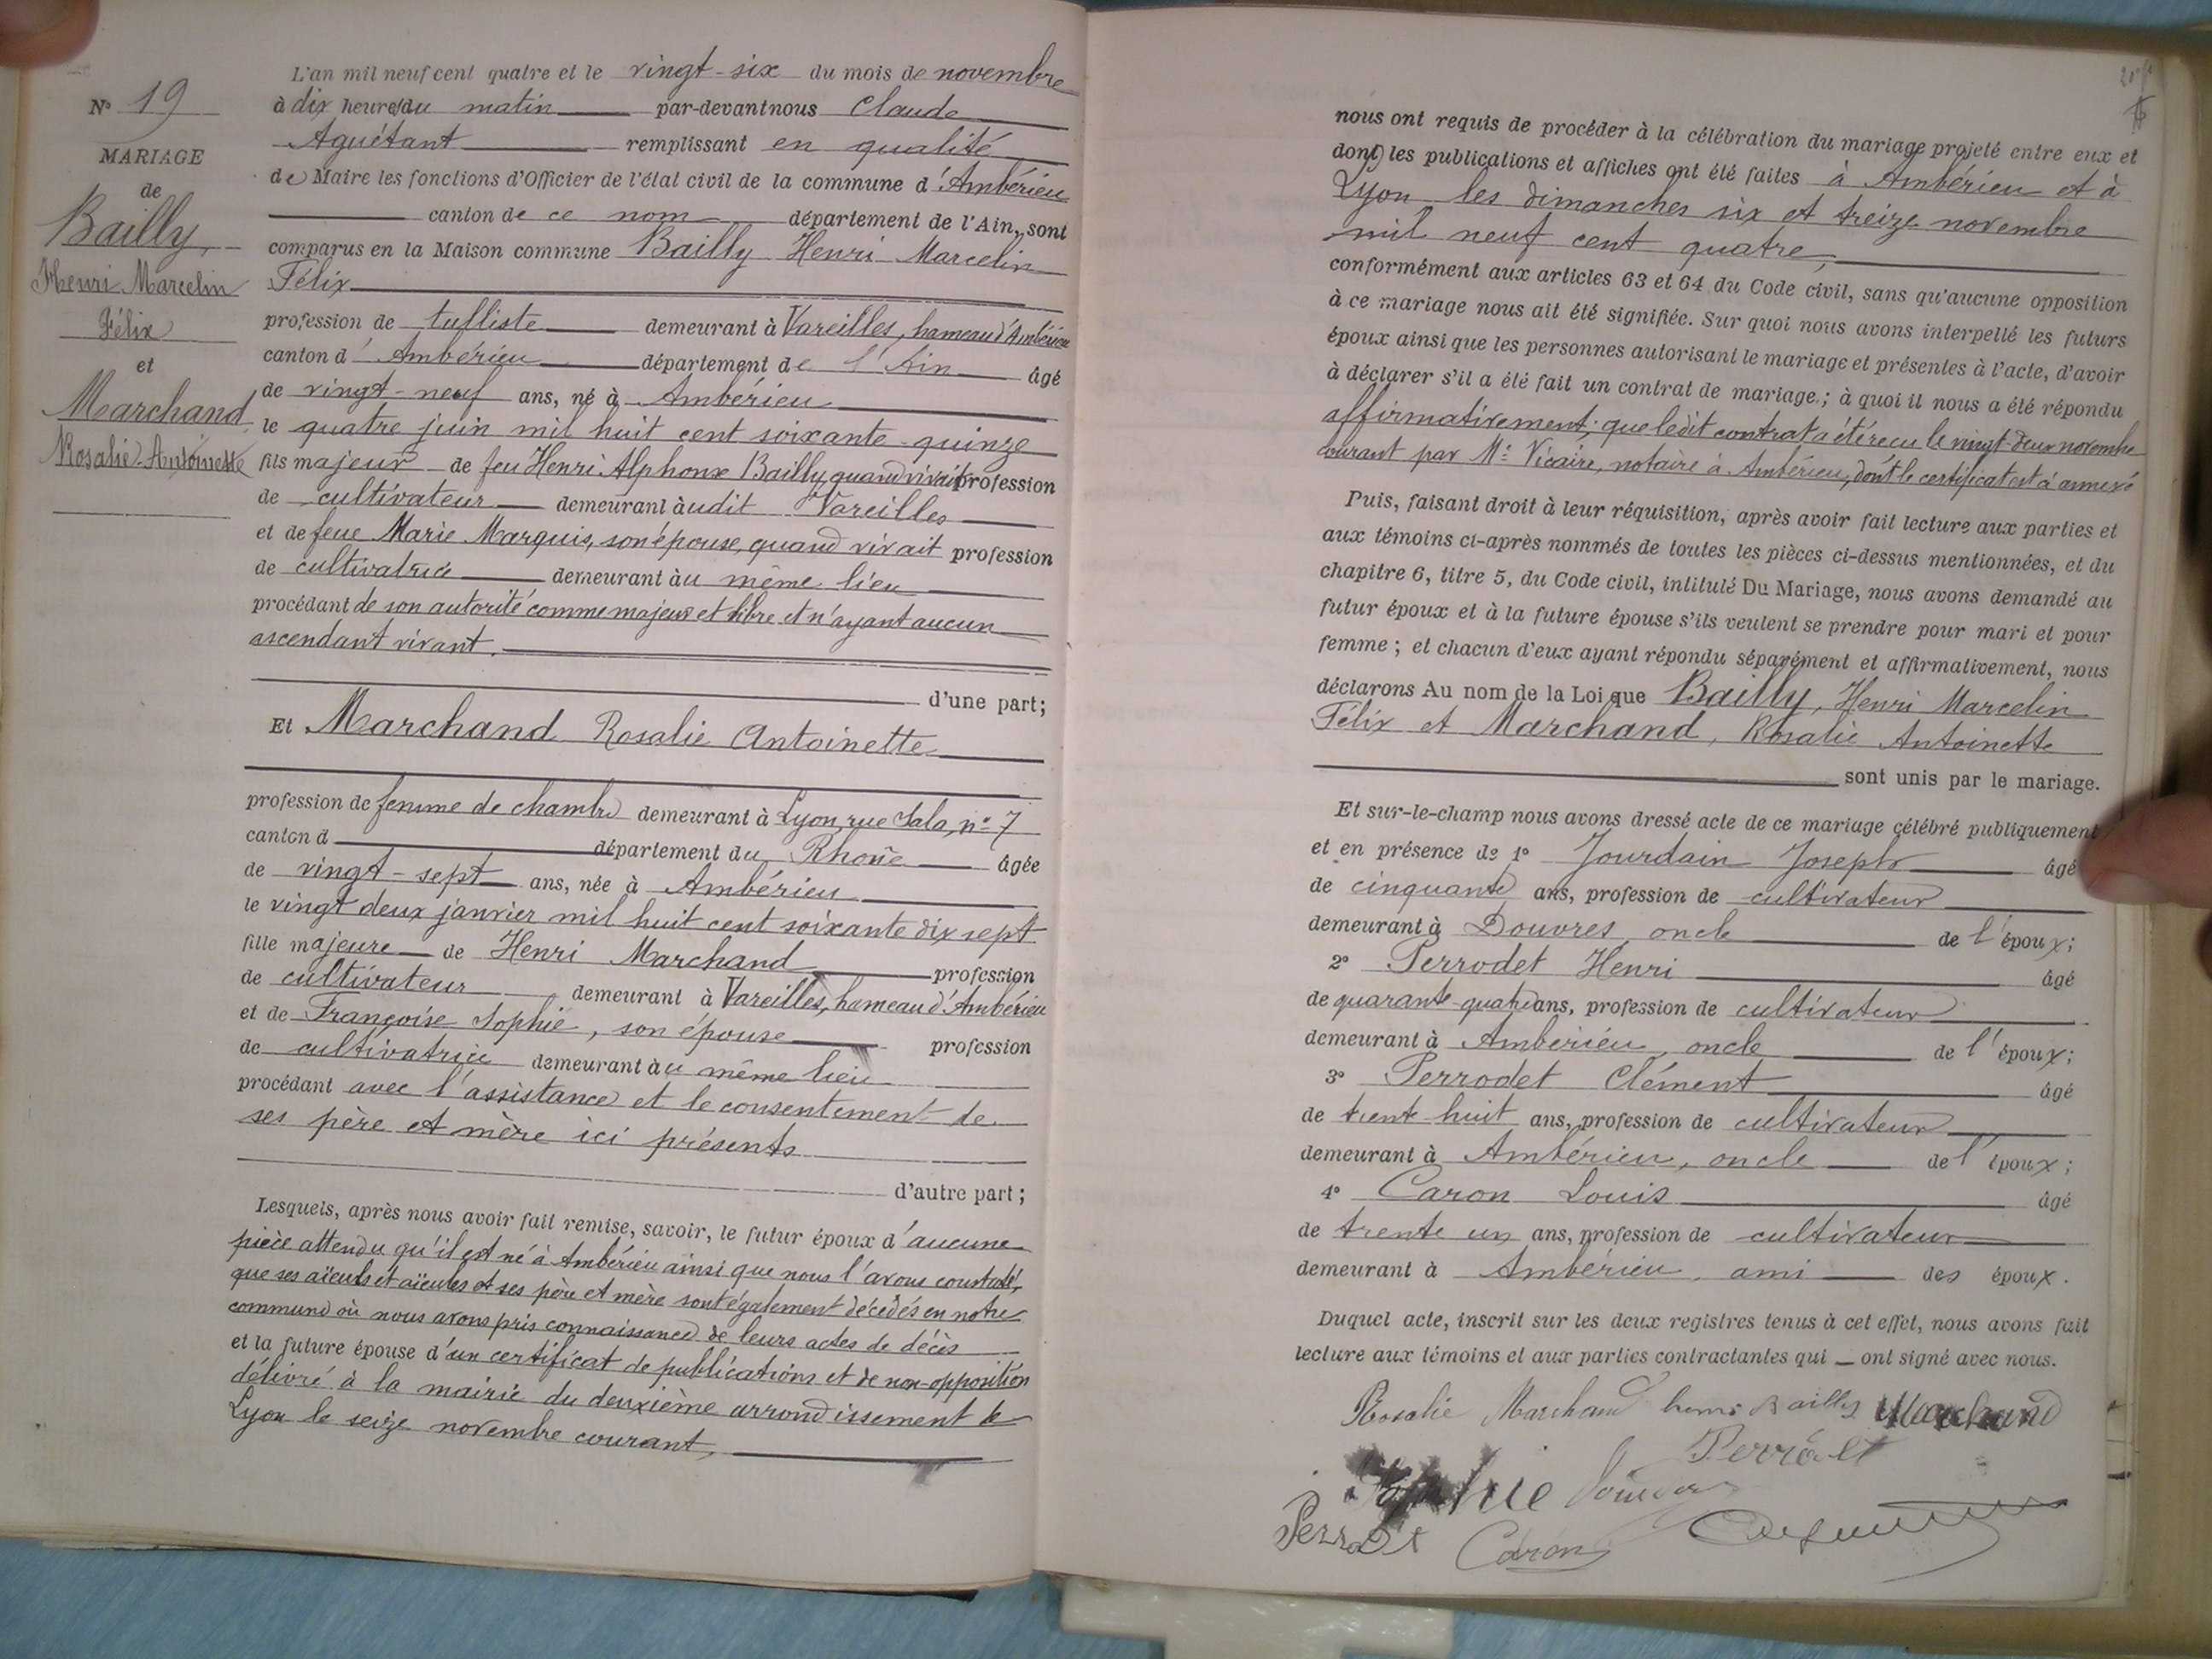 N° 19
MARIAGE
de
Bailly,
Henri Marcelin
Félix
et
Marchand
Rosalie Antoinette
L'an mil neuf cent quatre et le vingt-six du mois de novembre
à dix heures du matin par-devant nous Claude
Aguétant remplissant en qualité
de Maire les fonctions d'Officier de l'état civil de la commune d'Ambérieu
canton de ce nom département de l'Ain, sont
comparus en la Maison commune Bailly Henri Marcelin
Félix
profession de tulliste demeurant à Vareilles, hameau d'Ambérieu
canton d'Ambérieu département de l'Ain âgé
de vingt-neuf ans, né à Ambérieu
le quatre juin mil huit cent soixante-quinze
fils majeur de feu Henri Alphonse Bailly, quand vivait profession
de cultivateur demeurant audit Vareilles
et de feue Marie Marquis, son épouse, quand vivait profession
de cultivatrice demeurant au même lieu
procédant de son autorité comme majeur et libre et n'ayant aucun
ascendant vivant.
d'une part;
Et Marchand Rosalie Antoinette
profession de femme de chambre demeurant à Lyon, rue Sala, n° 7
canton d département du Rhône âgée
de vingt-sept ans, née à Ambérieu
le vingt deux janvier mil huit cent soixante dix sept
fille majeure de Henri Marchand profession
de cultivateur demeurant à Vareilles, hameau d'Ambérieu
et de Françoise Sophie, son épouse profession
de cultivatrice demeurant au même lieu
procédant avec l'assistance et le consentement de
ses père et mère ici présents
d'autre part;
Lesquels, après nous avoir fait remise, savoir, le futur époux d'aucune
pièce attendu qu'il est né à Ambérieu ainsi que nous l'avons constaté,
que ses aïeuls et aïeules et ses père et mère sont également décédés en notre
commune où nous avons pris connaissance de leurs actes de décès
et la future épouse d'un certificat de publications et de non-opposition
délivré à la mairie du deuxième arrondissement de
Lyon le seize novembre courant,
nous ont requis de procéder à la célébration du mariage projeté entre eux et
dont les publications et affiches ont été faites à Ambérieu et à
Lyon les dimanches six et treize novembre
mil neuf cent quatre,
conformément aux articles 63 et 64 du Code civil, sans qu'aucune opposition
à ce mariage nous ait été signifiée. Sur quoi nous avons interpellé les futurs
époux ainsi que les personnes autorisant le mariage et présentes à l'acte, d'avoir
à déclarer s'il a été fait un contrat de mariage; à quoi il nous a été répondu
affirmativement; que ledit contrat a été reçu le vingt-deux novembre
courant par Me Vicaire, notaire à Ambérieu, dont le certificat est ci annexé
Puis, faisant droit à leur réquisition, après avoir fait lecture aux parties et
aux témoins ci-après nommés de toutes les pièces ci-dessus mentionnées, et du
chapitre 6, titre 5, du Code civil, intitulé Du Mariage, nous avons demandé au
futur époux et à la future épouse s'ils veulent se prendre pour mari et pour
femme; et chacun d'eux ayant répondu séparément et affirmativement, nous
déclarons Au nom de la Loi que Bailly, Henri Marcelin
Félix et Marchand, Rosalie Antoinette
sont unis par le mariage.
Et sur-le-champ nous avons dressé acte de ce mariage célébré publiquement
et en présence de 1° Jourdain Joseph âgé
de cinquante ans, profession de cultivateur
demeurant à Douvres, oncle de l'époux;
2° Perrodet Henri âgé
de quarante-quatre ans, profession de cultivateur
demeurant à Ambérieu, oncle de l'époux;
3° Perrodet Clément âgé
de trente huit ans, profession de cultivateur
demeurant à Ambérieu, oncle de l'époux;
4° Caron Louis âgé
de trente un ans, profession de cultivateur
demeurant à Ambérieu, ami des époux.
Duquel acte, inscrit sur les deux registres tenus à cet effet, nous avons fait
lecture aux témoins et aux parties contractantes qui ont signé avec nous.
Rosalie Marchand henri Bailly Marchand
Perrodet
Sophie
Perrodet Caron